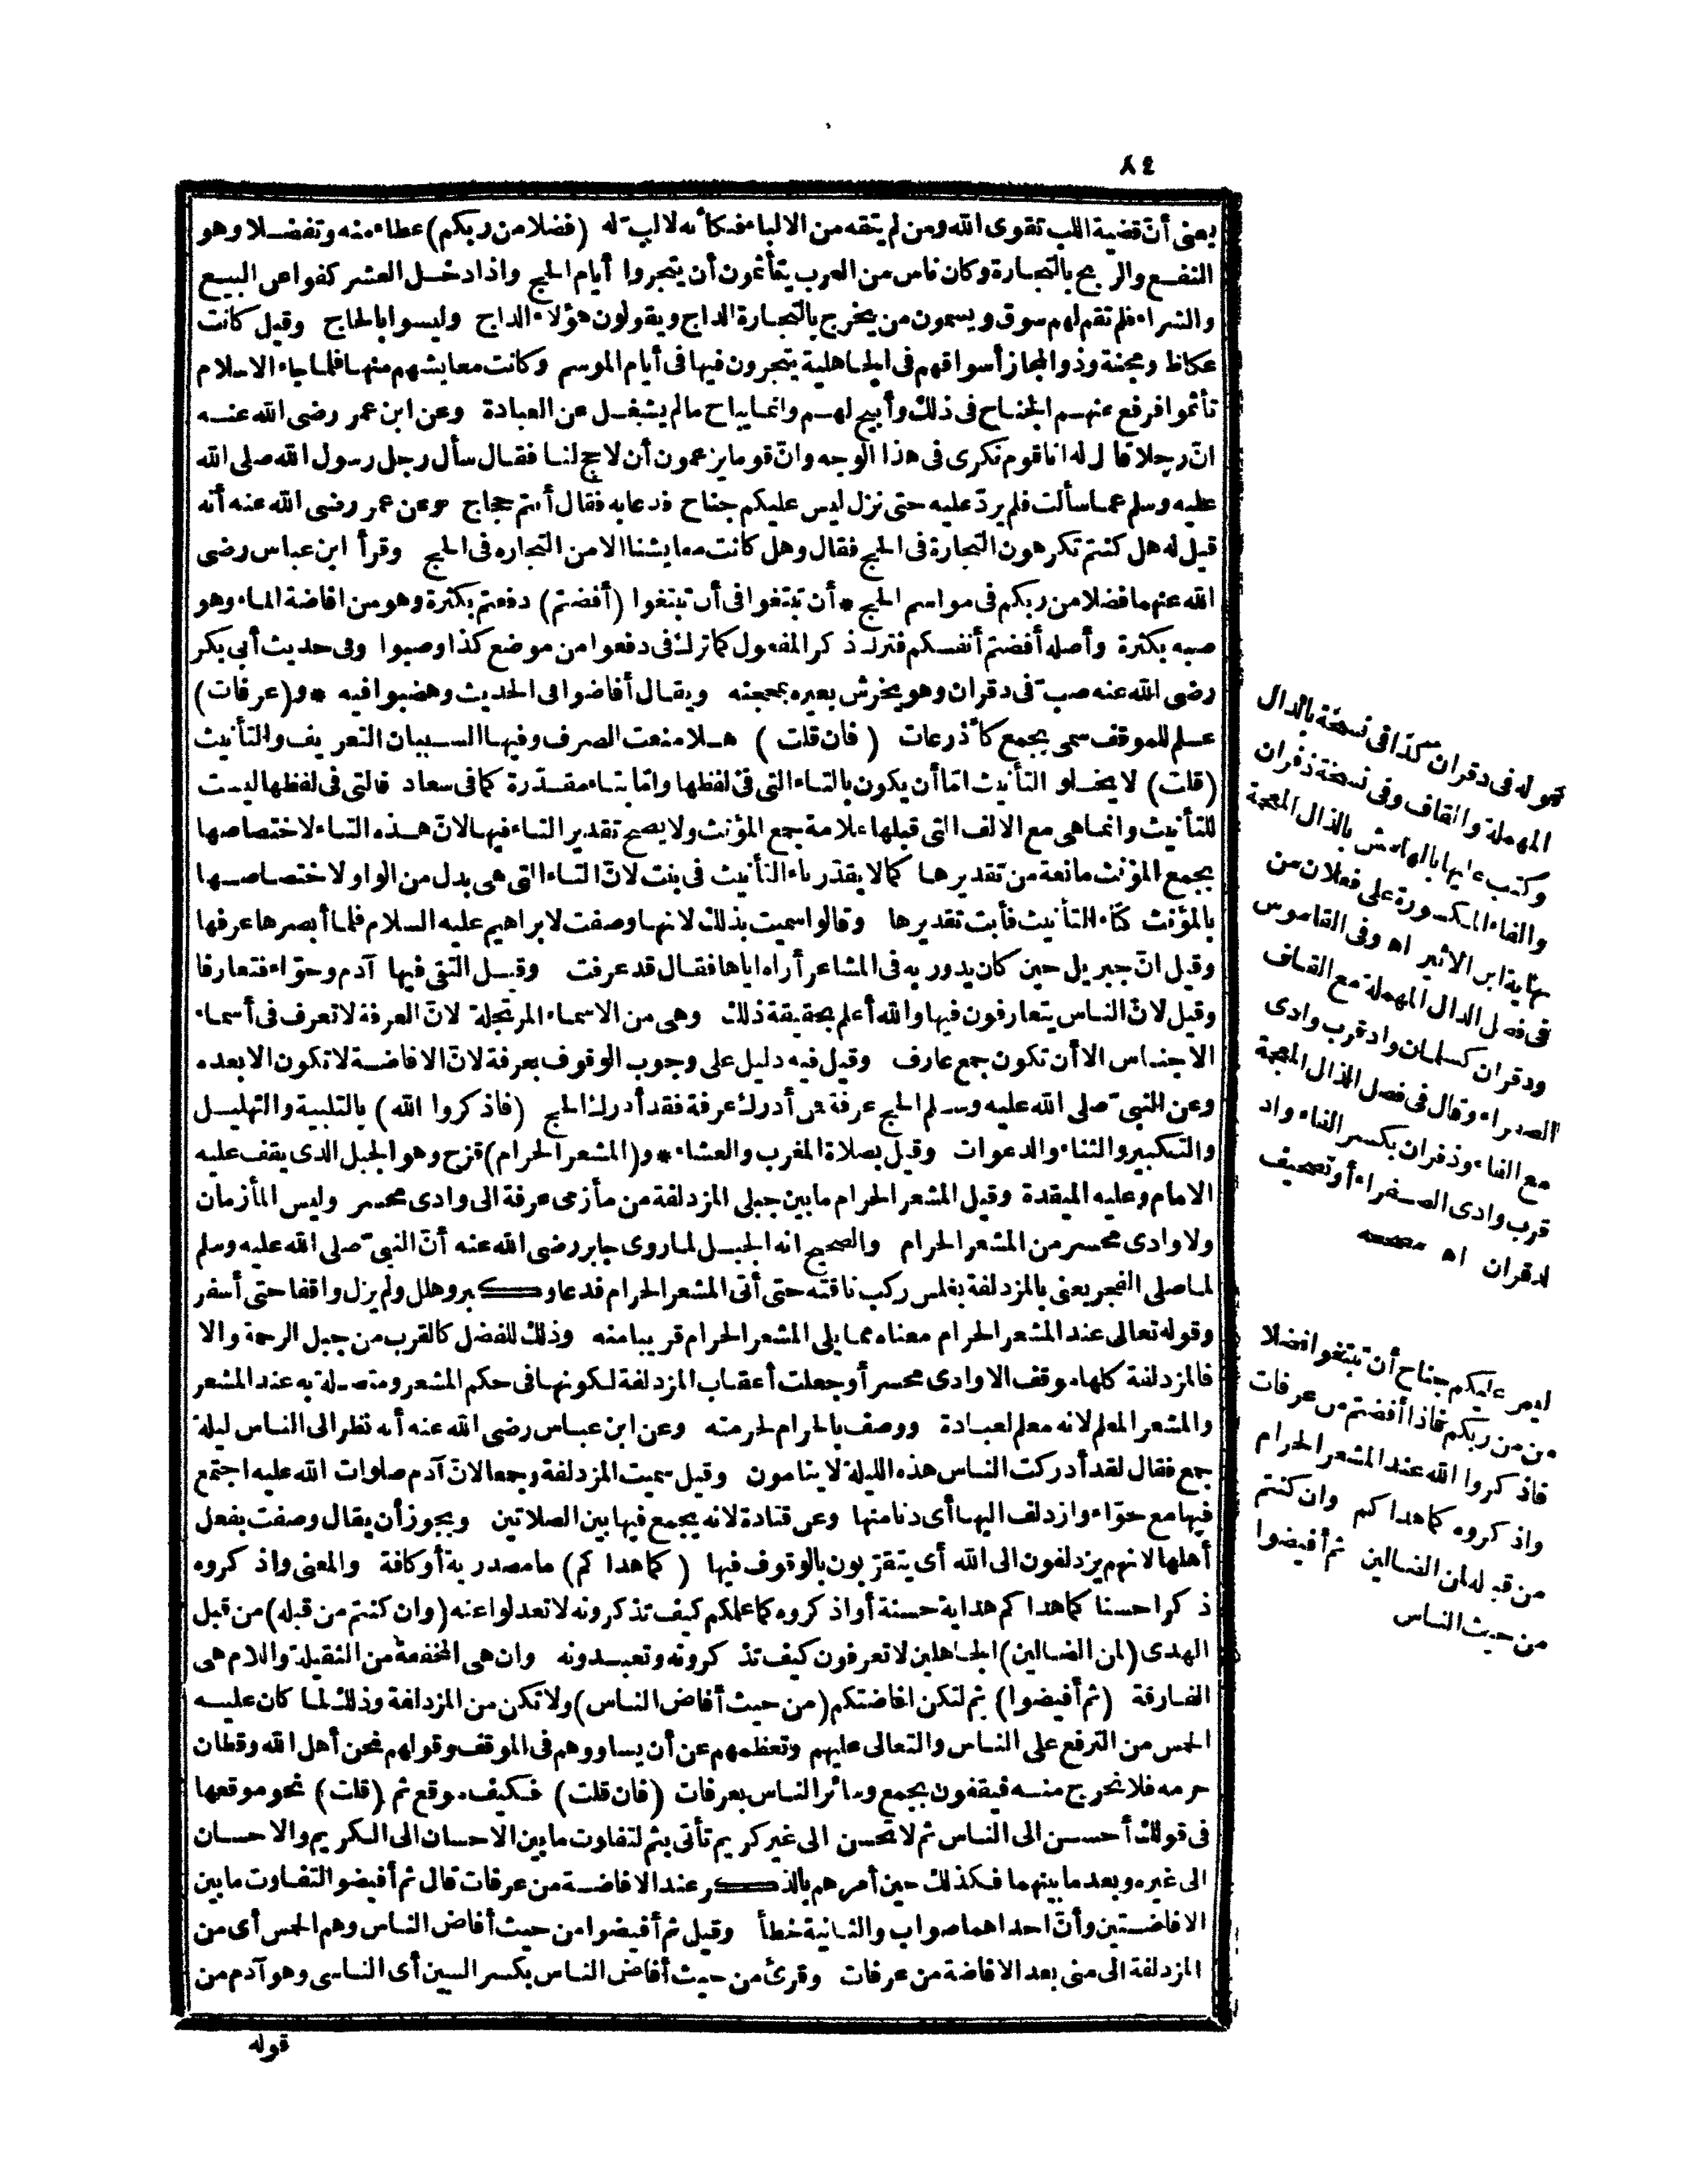 ٨٤
يعنى أنّ قضية اللب تقوى الله ومن لم يتقه من الالباء فكأنه لالبّ له (فضلا من ربكم) عطاء منه وتفضلا وهو
النفع والربح بالتجارة وكان ناس من العرب يتأثمون أن يتجروا أيام الحج واذا دخل العشر كفوا عن البيع
والشراء فلم تقم لهم سوق ويسمون من يخرج بالتجارة الداج ويقولون هؤلاء الداج وليسوا بالحاج وقيل كانت
عكاظ ومجنة وذو المجاز أسواقهم فى الجاهلية يتجرون فيها فى أيام الموسم وكانت معايشهم منها فلما جاء الاسلام
تأثموا فرفع عنهم الجناح فى ذلك وأبيح لهم وانما يباح ما لم يشغل عن العبادة وعن ابن عمر رضى الله عنه
انّ رجلا قال له انا قوم نكرى فى هذا الوجه وانّ قوما يزعمون أن لا حج لنا فقال سأل رجل رسول الله صلى الله
عليه وسلم عما سألت فلم يردّ عليه حتى نزل ليس عليكم جناح فدعا به فقال أنتم حجاج وعن عمر رضى الله عنه أنه
قيل له هل كنتم تكرهون التجارة فى الحج فقال وهل كانت معايشنا الا من التجاره فى الحج وقرأ ابن عباس رضى
الله عنهما فضلا من ربكم فى مواسم الحج * أن تبتغوا فى أن تبتغوا (أفضتم) دفعتم بكثرة وهو من افاضة الماء وهو
صبه بكثرة وأصله أفضتم أنفسكم فترك ذكر المفعول كما ترك فى دفعوا من موضع كذا وصبوا وفى حديث أبى بكر
رضى الله عنه صبّ فى دقران وهو يخرش بعيره بمحجنه ويقال أفاضوا فى الحديث وهضبوا فيه * و(عرفات)
علم للموقف سمى بجمع كأذرعات (فان قلت) هلا منعت الصرف وفيها السببان التعريف والتأنيث
(قلت) لا يخلو التأنيث امّا أن يكون بالتاء التى فى لفظها وامّا بتاء مقدّرة كما فى سعاد فالتى فى لفظها ليست
للتأنيث وانما هى مع الالف التى قبلها علامة جمع المؤنث ولا يصح تقدير التاء فيها لانّ هذه التاء لاختصاصها
بجمع المؤنث مانعة من تقديرها كما لا يقدّر تاء التأنيث فى بنت لانّ التاء التى هى بدل من الواو لاختصاصها
بالمؤنث كتاء التأنيث فأبت تقديرها وقالوا سميت بذلك لانها وصفت لابراهيم عليه السلام فلما أبصرها عرفها
وقيل انّ جبريل حين كان يدور به فى المشاعر أراه اياها فقال قد عرفت وقيل التقى فيها آدم وحوّاء فتعارفا
وقيل لانّ الناس يتعارفون فيها والله أعلم بحقيقة ذلك وهى من الاسماء المرتجلة لانّ العرفة لا تعرف فى أسماء
الاجناس الا أن تكون جمع عارف وقيل فيه دليل على وجوب الوقوف بعرفة لانّ الافاضة لا تكون الا بعده
وعن النبىّ صلى الله عليه وسلم الحج عرفة فمن أدرك عرفة فقد أدرك الحج (فاذكروا الله) بالتلبية والتهليل
والتكبير والثناء والدعوات وقيل بصلاة المغرب والعشاء * و(المشعر الحرام) قزح وهو الجبل الذى يقف عليه
الامام وعليه الميقدة وقيل المشعر الحرام ما بين جبلى المزدلفة من مأزمى عرفة الى وادى محسر وليس المأزمان
ولا وادى محسر من المشعر الحرام والصحيح انه الجبل لما روى جابر رضى الله عنه أنّ النبىّ صلى الله عليه وسلم
لما صلى الفجر يعنى بالمزدلفة بغلس ركب ناقته حتى أتى المشعر الحرام فدعا وكبر وهلل ولم يزل واقفا حتى أسفر
وقوله تعالى عند المشعر الحرام معناه مما يلى المشعر الحرام قريبا منه وذلك للفضل كالقرب من جبل الرحمة والا
فالمزدلفة كلها موقف الا وادى محسر أو جعلت أعقاب المزدلفة لكونها فى حكم المشعر ومتصلة به عند المشعر
والمشعر المعلم لانه معلم لعبادة ووصف بالحرام لحرمته وعن ابن عباس رضى الله عنه أنه نظر الى الناس ليلة
جمع فقال لقد أدركت الناس هذه الليلة لا ينامون وقيل سميت المزدلفة وجمعا لانّ آدم صلوات الله عليه اجتمع
فيها مع حوّاء وازدلف اليها أى دنا منها وعن قتادة لانه يجمع فيها بين الصلاتين ويجوز أن يقال وصفت بفعل
أهلها لانهم يزدلفون الى الله أى يتقرّبون بالوقوف فيها (كما هداكم) ما مصدرية أو كافة والمعنى واذكروه
ذكرا حسنا كما هداكم هداية حسنة أو اذكروه كما علمكم كيف تذكرونه لا تعدلوا عنه (وان كنتم من قبله) من قبل
الهدى (لمن الضالين) الجاهلين لا تعرفون كيف تذكرونه وتعبدونه وان هى المخففة من الثقيلة واللام هى
الفارقة (ثم أفيضوا) ثم لتكن افاضتكم (من حيث أفاض الناس) ولا تكن من المزدلفة وذلك لما كان عليه
الحمس من الترفع على الناس والتعالى عليهم وتعظمهم عن أن يساووهم فى الموقف وقولهم نحن أهل الله وقطان
حرمه فلا نخرج منه فيقفون بجمع وسائر الناس بعرفات (فان قلت) فكيف موقع ثم (قلت) نحو موقعها
فى قولك أحسن الى الناس ثم لا تحسن الى غير كريم تأتى بثم لتفاوت ما بين الاحسان الى الكريم والاحسان
الى غيره وبعد ما بينهما فكذلك حين أمرهم بالذكر عند الافاضة من عرفات قال ثم أفيضوا لتفاوت ما بين
الافاضتين وأنّ احداهما صواب والثانية خطأ وقيل ثم أفيضوا من حيث أفاض الناس وهم الحمس أى من
المزدلفة الى منى بعد الافاضة من عرفات وقرئ من حيث أفاض الناس بكسر السين أى الناسى وهو آدم من
قوله
قوله فى دقران كذا فى نسخة بالدال
المهملة والقاف وفى نسخة ذفران
وكتب عليها بالهامش بالذال المعجمة
والفاء المكسورة على فعلان من
نهاية ابن الاثير اه وفى القاموس
فى فصل الدال المهملة مع القاف
ودقران كسلمان واد قرب وادى
الصفراء وقال فى فصل الذال المعجمة
مع الفاء وذفران بكسر الفاء واد
قرب وادى الصفراء أو تصحيف
لدقران اه مصححه
ليس عليكم جناح أن تبتغوا فضلا
من ربكم فاذا أفضتم من عرفات
فاذكروا الله عند المشعر الحرام
واذكروه كما هداكم وان كنتم
من قبله لمن الضالين ثم أفيضوا
من حيث الناس